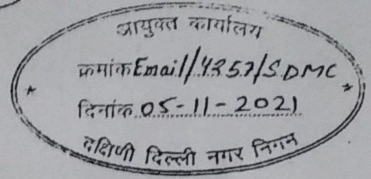 आयुक्त कार्यालय
क्रमांक Email/4357/SDMC
दिनांक 05-11-2021
दक्षिणी दिल्ली नगर निगम